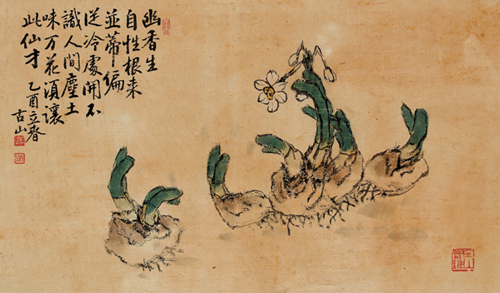 幽香生
自性根来
並蒂偏
從冷處開不
識人間塵土
味万花須讓
此仙才
乙酉立春
古山